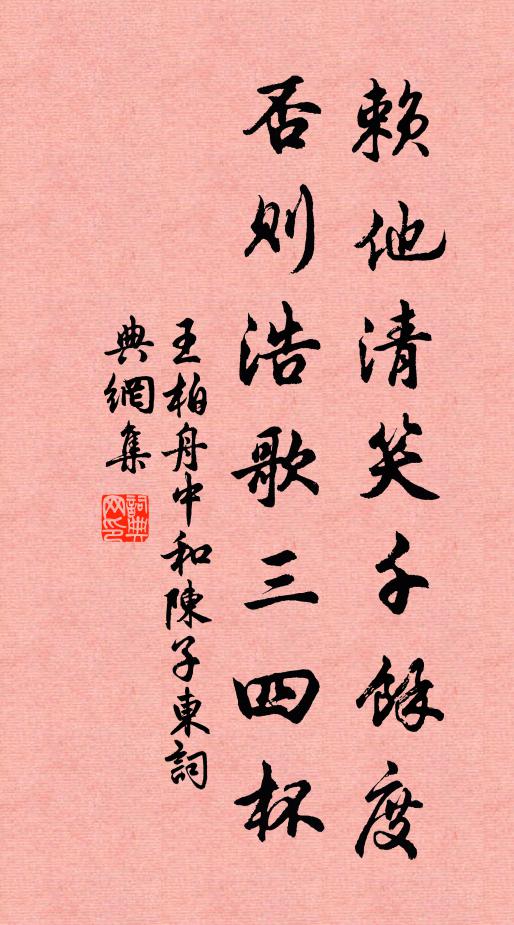 賴他清笑千餘度
否則浩歌三四杯
王柏舟中和陳子東詞
典網集
詞典網印